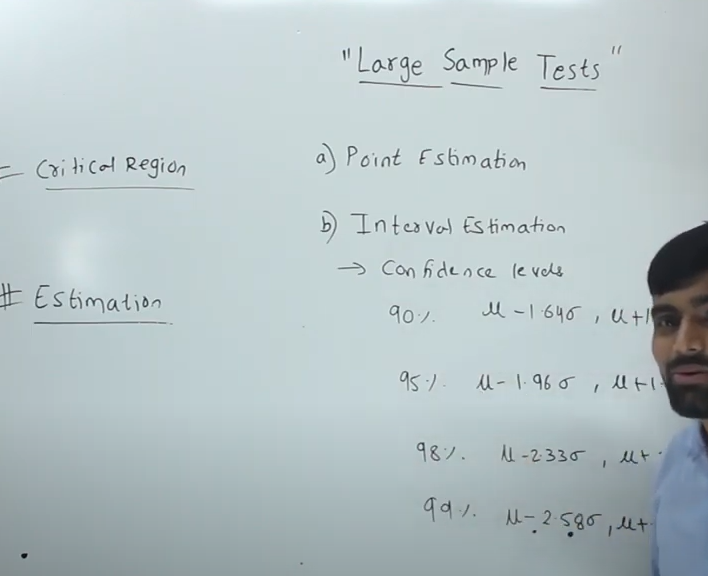 "Large Sample Tests"
Critical Region
# Estimation
a) Point Estimation
b) Interval Estimation
→ Confidence levels
90% μ-1.64σ, μ+1
95% μ-1.96σ, μ+1.
98% μ-2.33σ, μ+
99% μ-2.58σ, μ+